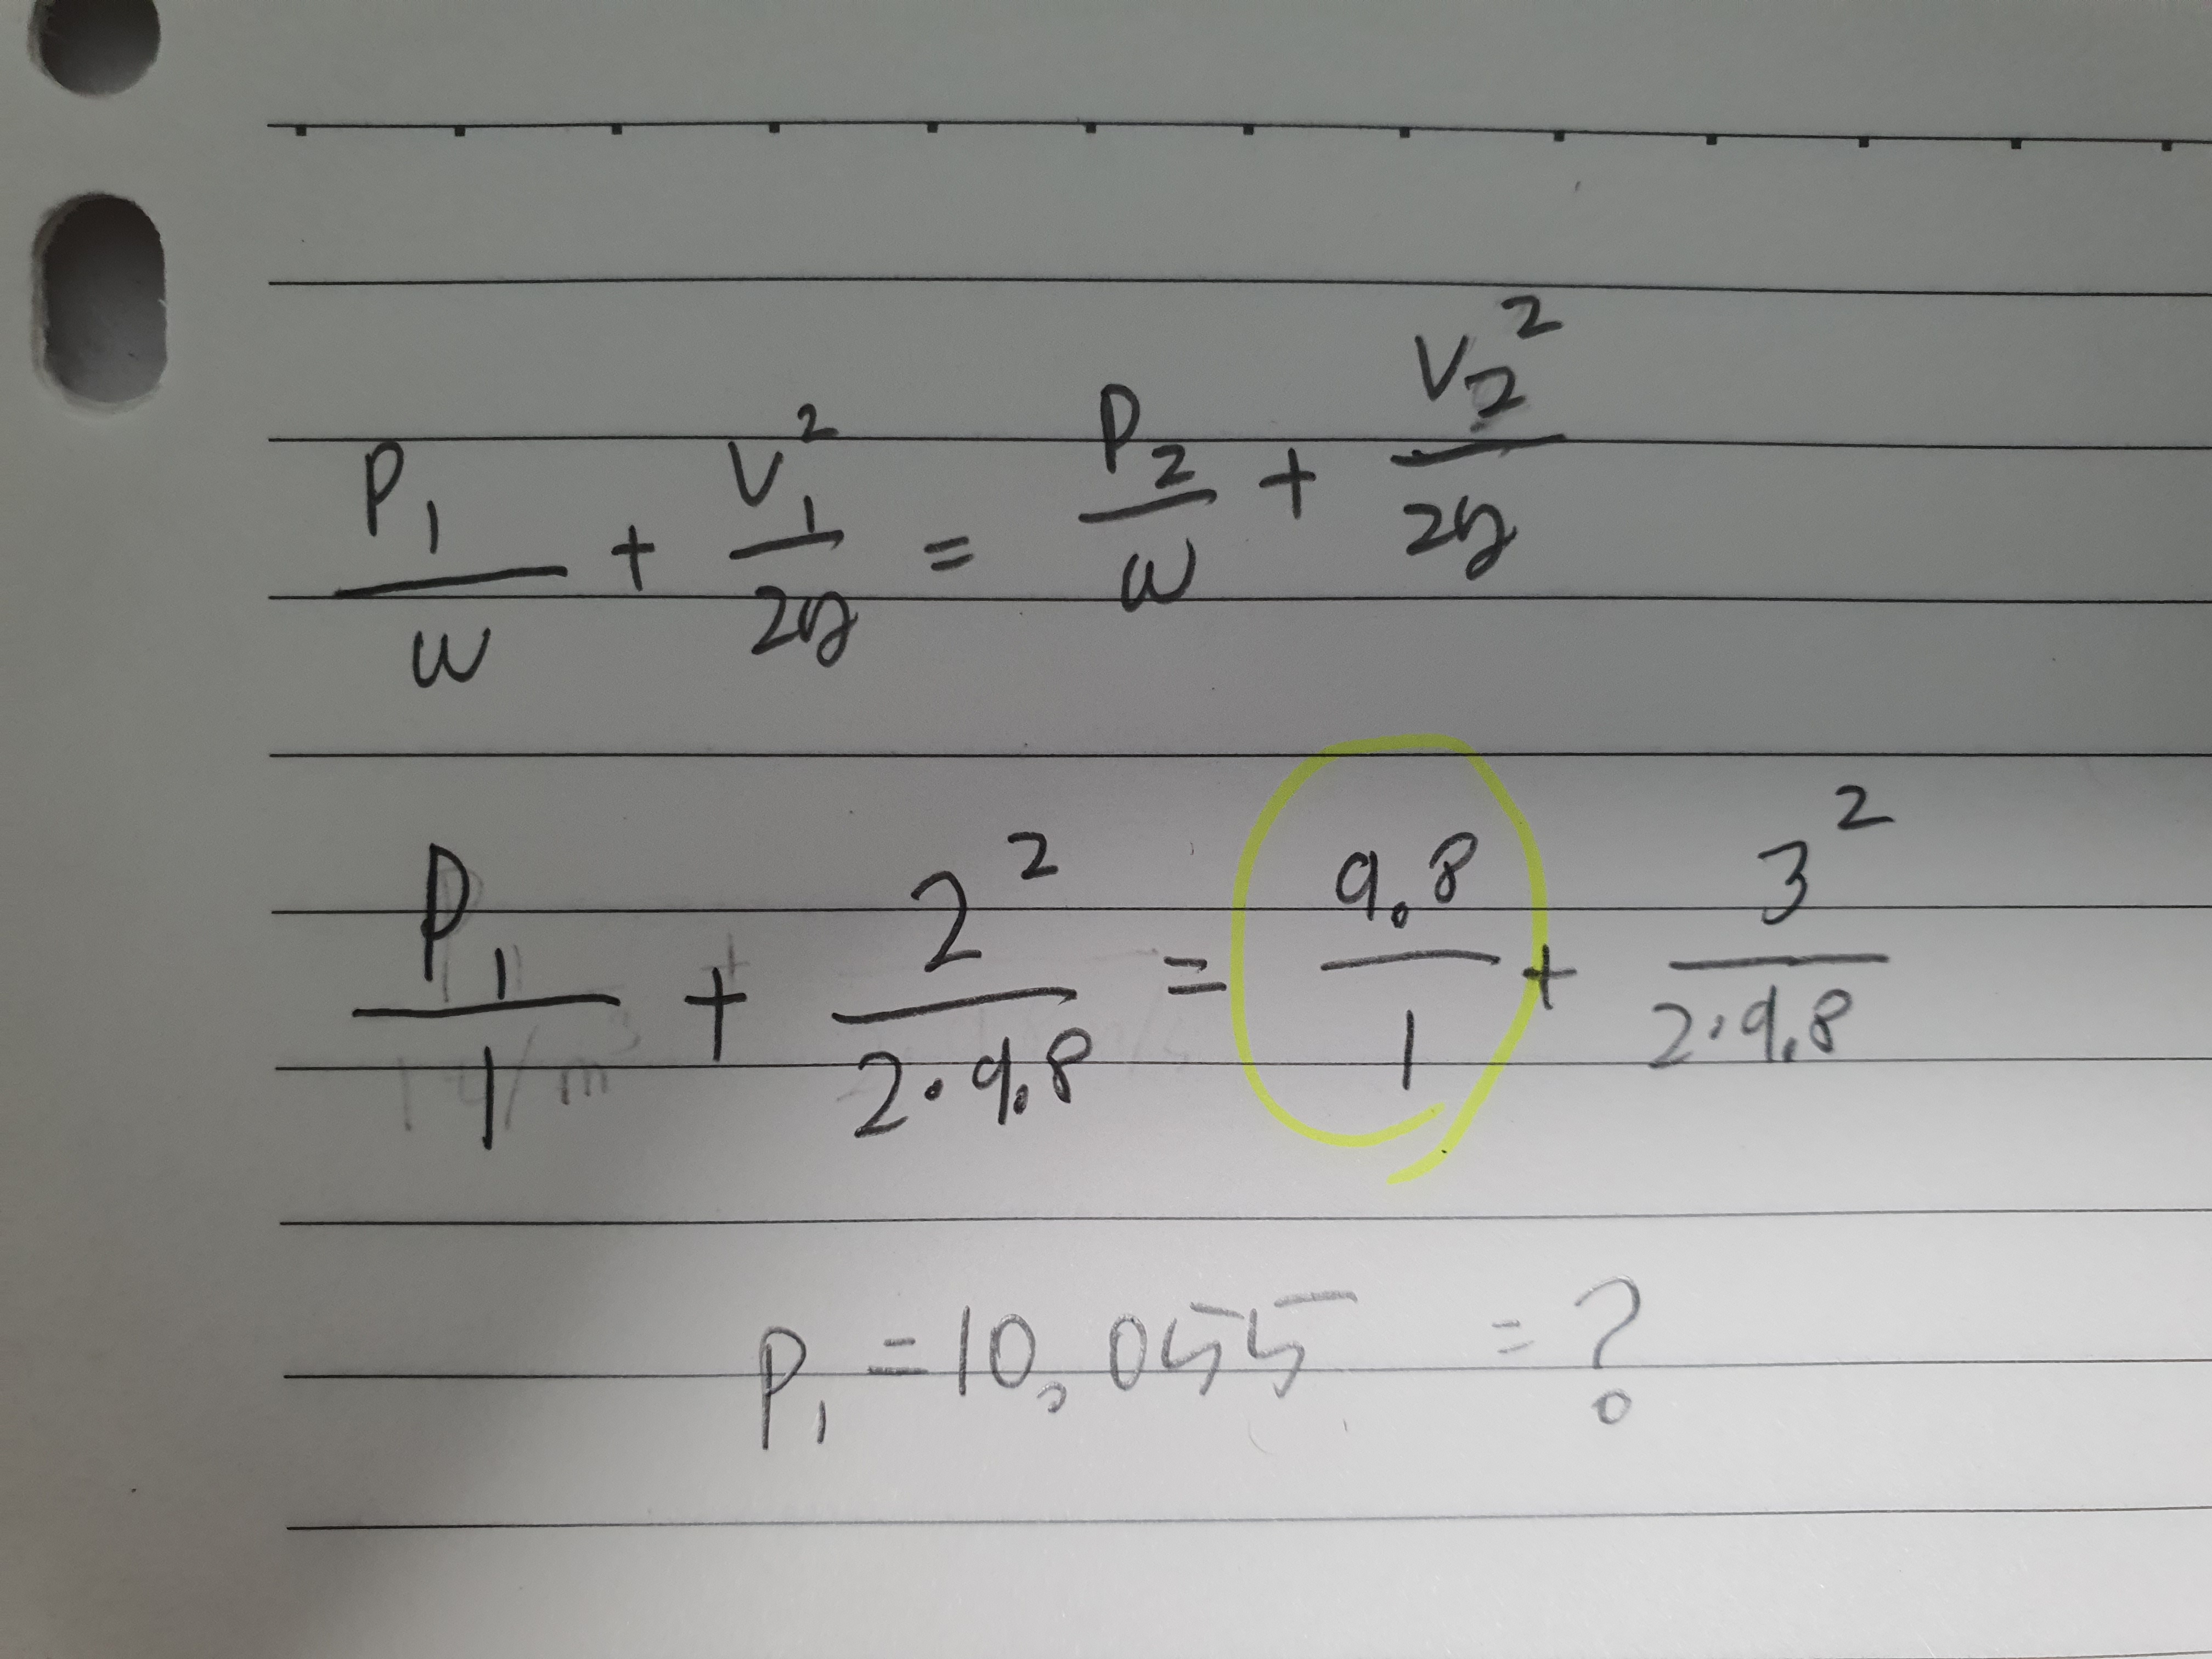 P₁/w + V₁²/2g = P₂/w + V₂²/2g
P₁/1 + 2²/2·9.8 = 9.8/1 + 3²/2·9.8
P₁ = 10,055 = ?